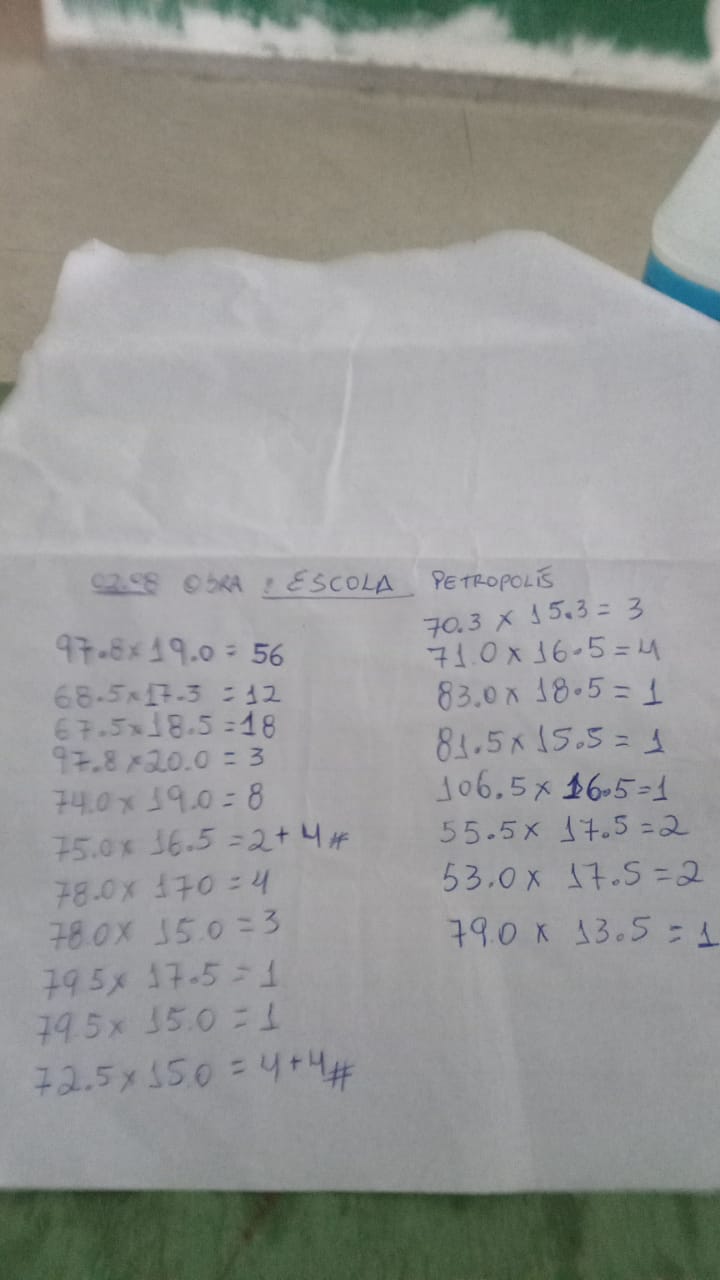 02.08 OBRA : ESCOLA PETROPOLIS
97.8x19.0 = 56
68.5x17.3 = 12
67.5x18.5 = 18
97.8x20.0 = 3
74.0x 19.0 = 8
75.0x 16.5 = 2 + 4 #
78.0x 170 = 4
78.0x 15.0 = 3
79.5x 17.5 = 1
79.5x 15.0 = 1
72.5x15.0 = 4+4#
70.3 x 15.3 = 3
71.0 x 16.5 = 4
83.0x 18.5 = 1
81.5x15.5 = 1
106.5x 16.5=1
55.5x 17.5=2
53.0x 17.5=2
79.0 x 13.5 = 1